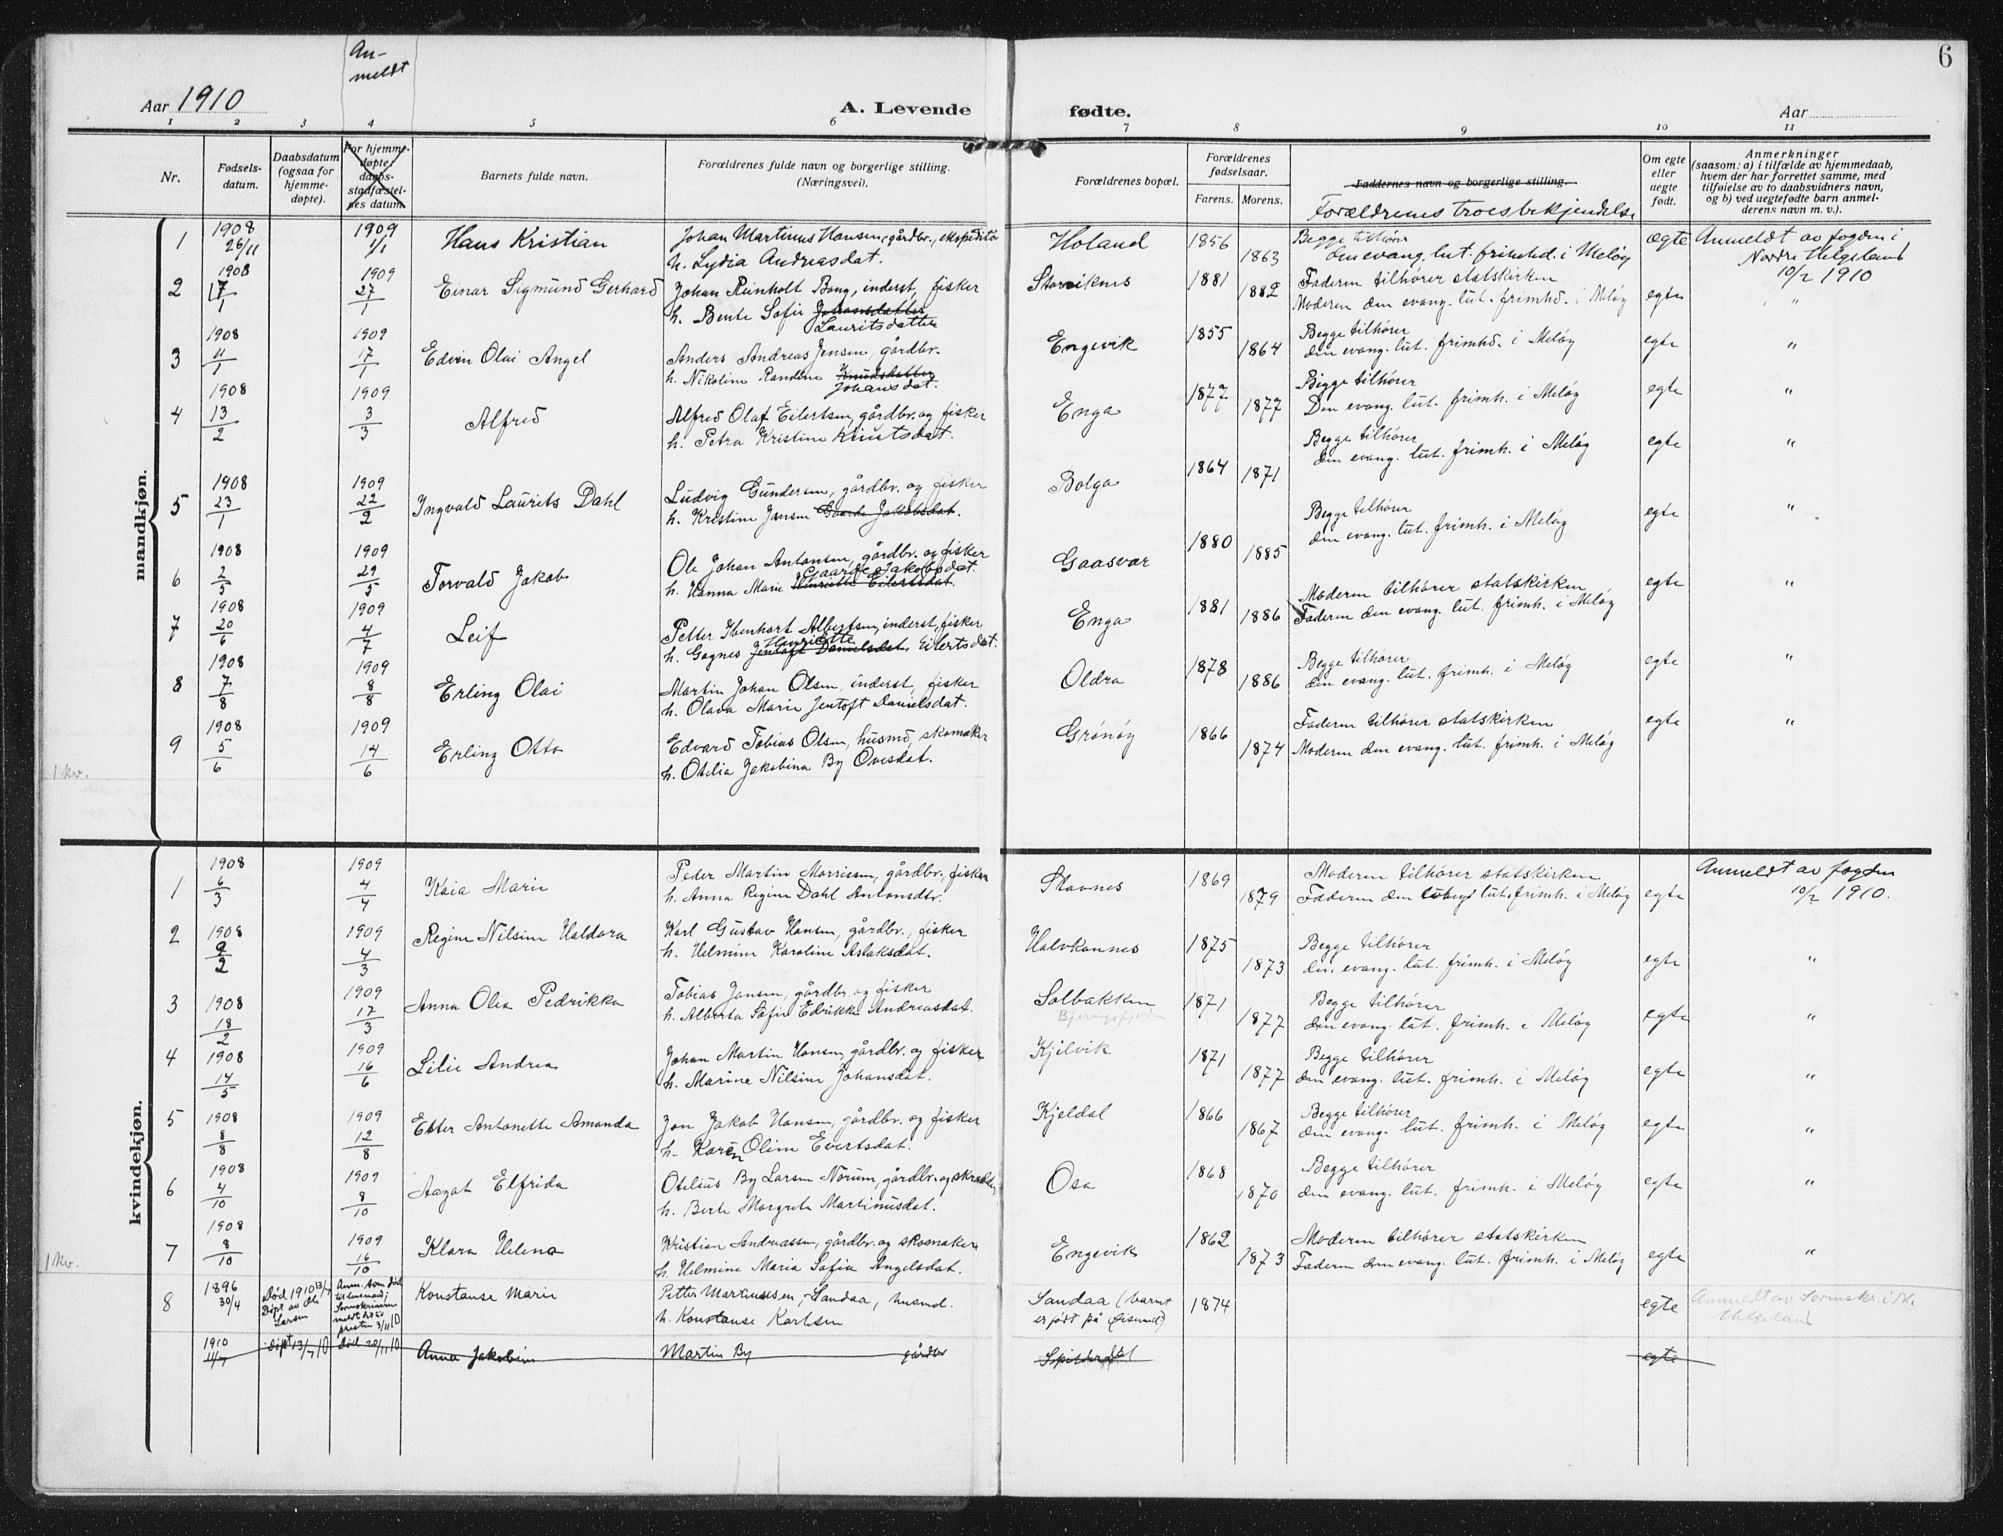 6
An-
meldt
Aar 1910
A. Levende fødte.
Aar
1 2 3 4 5 6 7 8 9 10 11
Nr.
Fødsels-
datum.
Daabsdatum
(ogsaa for
hjemme-
døpte).
For hjemme-
døpte
daabs-
stadfæstel-
ses datum.
Barnets fulde navn.
Forældrenes fulde navn og borgerlige stilling.
(Næringsvei).
Forældrenes bopæl.
Forældrenes
fødselsaar.
Farens. Morens.
Faddernes navn og borgerlige stilling.
Forældrenes troesbekjendelse
Om egte
eller
uegte
født.
Anmerkninger
(saasom: a) i tilfælde av hjemmedaab,
hvem der har forrettet samme, med
tilføielse av to daabsvidners navn,
og b) ved uegtefødte barn anmel-
derens navn m. v.).
mandkjøn.
1 1908 26/11 1909 1/1 Hans Kristian Johan Martinus Hansen, gårdbr., ekspeditør Holand 1856 Begge tilhører ægte Anmeldt av fogden i
h. Lydia Andreasdat. 1863 den evang. lut. frimhd. i Meløy Nordre Helgeland
10/2 1910
2 1908 17/1 1909 27/1 Einar Sigmund Gerhard Johan Reinholt Bong, inderst, fisker Storviknes 1881 Faderen tilhører statskirken
h. Bente Sofie Johansdatter 1882 Moderen den evang. lut. frimhd. i Meløy egte "
Lauritsdatter
3 1908 11/1 1909 17/1 Edvin Olai Angel Anders Andreas Jensen, gårdbr. Engevik 1855 Begge tilhører
h. Nikoline Randine Knudsdatter 1864 den evang. lut. frimhd. i Meløy egte "
Johansdat.
4 1908 13/2 1909 3/3 Alfred Alfred Olaf Eilertsen, gårdbr. og fisker Enga 1877 Begge tilhører egte "
h. Petra Kristine Knutsdat. 1877 Den evang. lut. frimh. i Meløy
5 1908 23/1 1909 22/2 Ingvald Laurits Dahl Ludvig Gundersen, gårdbr. og fisker Bolga 1864 Begge tilhører egte "
h. Kristine Jansen Gaarde Jakobsdat. 1871 den evang. lut. frimh. i Meløy
6 1908 2/5 1909 29/5 Torvald Jakob Ole Johan Antonsen, gårdbr. og fisker Gaasvær 1880 Begge tilhører egte "
Gaarde Jakobsdat.
h. Hanna Marie Henriette Eilertsdat. 1885 den evang. lut. frimh. i Meløy
7 1908 20/6 1909 4/7 Leif Petter Ibenhart Albertsen, inderst, fisker Enga 1881 Moderen tilhører statskirken egte "
Henriette
h. Gagnes Jentoft Danielsdat. Eilertsdat. 1886 Faderen den evang. lut. frimh. i Meløy
8 1908 7/8 1909 8/8 Erling Olai Martin Johan Olsen, inderst, fisker Oldra 1878 Begge tilhører egte "
h. Olava Marie Jentoft Danielsdat. 1886 den evang. lut. frimh. i Meløy
9 1908 5/6 1909 14/6 Erling Otto Edvard Tobias Olsen, husmd, skomaker Grønøy 1866 Faderen tilhører statskirken egte "
h. Otelia Jakobina By Ovesdat. 1874 Moderen den evang. lut. frimh. i Meløy
1 kv.
kvindekjøn.
1 1908 6/3 1909 4/4 Kaia Marie Peder Martin Morrisen, gårdbr., fisker Stavnes 1869 Moderen tilhører statskirken Anmeldt av fogden
h. Anna Regine Dahl Antonsdtr. 1879 Faderen den evang. lut. frimh. i Meløy egte 10/2 1910.
2 1908 9/2 1909 4/3 Regine Nilsine Haldora Karl Gustav Hansen, gårdbr., fisker Halvkannes 1875 Begge tilhører
h. Helmine Karoline Aslaksdat. 1873 den evang. lut. frimh. i Meløy egte "
3 1908 18/2 1909 17/3 Anna Olea Pedrikka Tobias Jansen, gårdbr. og fisker Solbakken 1871 Begge tilhører
h. Alberta Sofie Edrikke Andreasdat. Bjerangsfjord 1877 den evang. lut. frimh. i Meløy egte "
4 1908 14/5 1909 16/6 Lilie Andrea Johan Martin Hansen, gårdbr. og fisker Kjelvik 1871 Begge tilhører
h. Marine Nilsine Johansdat. 1877 den evang. lut. frimh. i Meløy egte "
5 1908 8/8 1909 12/8 Ester Antonette Amanda Jon Jakob Hansen, gårdbr. og fisker Kjeldal 1866 Begge tilhører
h. Karen Oline Evertsdat. 1867 den evang. lut. frimh. i Meløy egte "
6 1908 4/10 1909 8/10 Aagot Elfrida Otelius By Larsen Norum, gårdbr. og skrædder Osa 1868 Begge tilhører
h. Berte Margrete Martinusdat. 1870 den evang. lut. frimh. i Meløy egte "
7 1908 8/10 1909 16/10 Klara Helena Kristian Andreassen, gårdbr. og skomaker Engevik 1862 Moderen tilhører statskirken
h. Helmine Maria Sofia Angelsdat. 1873 Faderen den evang. lut. frimh. i Meløy egte "
1 kv.
8 1896 30/4 Død 1910 13/7 Døpt av Oli Larsen Anm. som død Konstanse Marie Petter Martinussen, Sandaa, husmd. Sandaa (barnet 1874 egte Anmeldt av Sorenskr. i N.
h. Konstanse Karlsen er født på Helgeland
1910 11/7 døpt 13/7 10 død 20/11 10 Anna Jakobine Martin By gårdbr Spilderdal egte